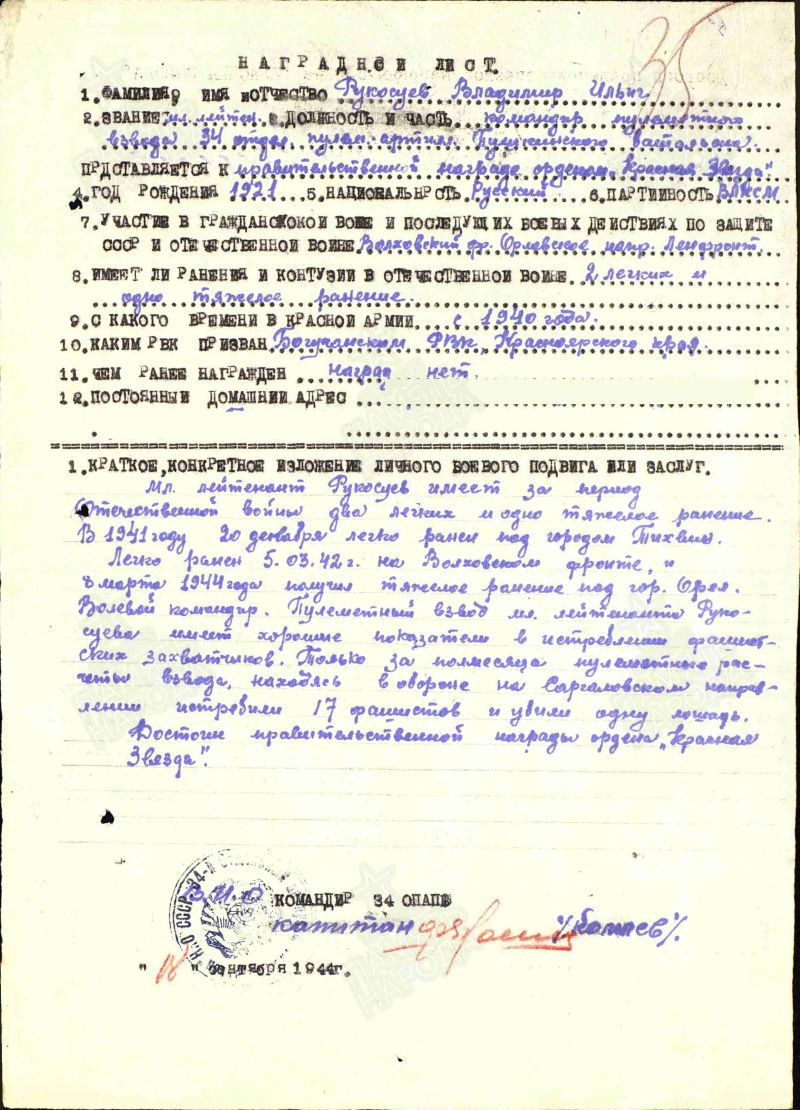 35
НАГРАДНОЙ ЛИСТ.
1.ФАМИЛИЯ, ИМЯ иОТЧЕСТВО Рукосуев Владимир Ильич
2.ЗВАНИЕ мл. лейтен. 3.ДОЛЖНОСТЬ И ЧАСТЬ. командир пулеметного
взвода 34 отдел. пулем. артил. Пушкинского батальона.
ПРДСТАВЛЯЕТСЯ К правительственной награде орденом „Красная Звезда".
4.ГОД РОЖДЕНИЯ 1921 5.НАЦИОНАЛЬНРСТЬ Русский 6.ПАРТИЙНОСТЬ ВЛКСМ
7.УЧАСТИЕ В ГРАЖДАНСКОКОЙ ВОЙНЕ И ПОСЛЕДУЮЩИХ БОЕВЫХ ДЕЙСТВИЯХ ПО ЗАЩИТЕ
СССР И ОТЕЧЕСТВЕННОЙ ВОЙНЕ. Волховский фр. Орловское напр. Ленфронт.
8.ИМЕЕТ ЛИ РАНЕНИЯ И КОНТУЗИИ В ОТЕЧЕСТВЕННОЙ ВОЙНЕ 2 легких и
одно тяжелое ранение.
9.С КАКОГО ВРЕМЕНИ В КРАСНОЙ АРМИИ с 1940 года.
10.КАКИМ РВК ПРИЗВАН Богучанским РВК, Красноярского края.
11.ЧЕМ РАНЕЕ НАГРАЖДЕН наград нет.
12.ПОСТОЯННЫЙ ДОМАШНИЙ АДРЕС
1.КРАТКОЕ,КОНКРЕТНОЕ ИЗЛОЖЕНИЕ ЛИЧНОГО БОЕВОГО ПОДВИГА ИЛИ ЗАСЛУГ.
Мл. лейтенант Рукосуев имеет за период
Отечественной войны два легких и одно тяжелое ранение.
В 1941 году 20 декабря легко ранен под городом Тихвин.
Легко ранен 5.03.42 г. на Волховском фронте, и
8 марта 1944 года получил тяжелое ранение под гор. Орел.
Волевой командир. Пулеметный взвод мл. лейтенанта Руко-
суева имеет хорошие показатели в истреблении фашист-
ских захватчиков. Только за полмесяца пулеметного рас-
четы взвода, находясь в обороне на Саргаловском направ-
лении истребили 17 фашистов и убили одну лошадь.
Достоин правительственной награды ордена „Красная
Звезда".
В.И.О КОМАНДИР 34 ОПАПБ
капитан
" 18 " сентября 1944г.